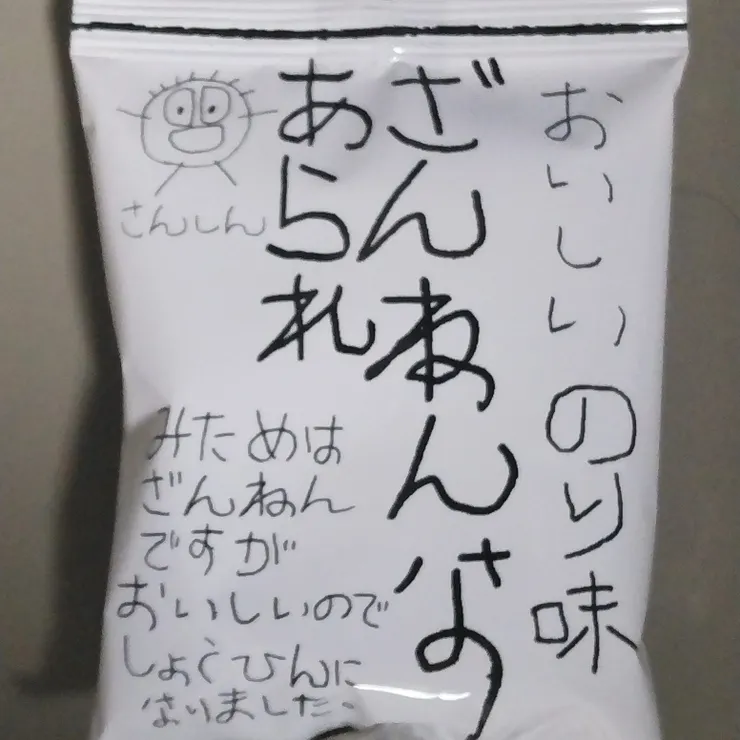 おいしいのり味
ざんねんな
あられ
さんしん
みためは
ざんねん
ですが
おいしいので
しょうひんに
なりました。